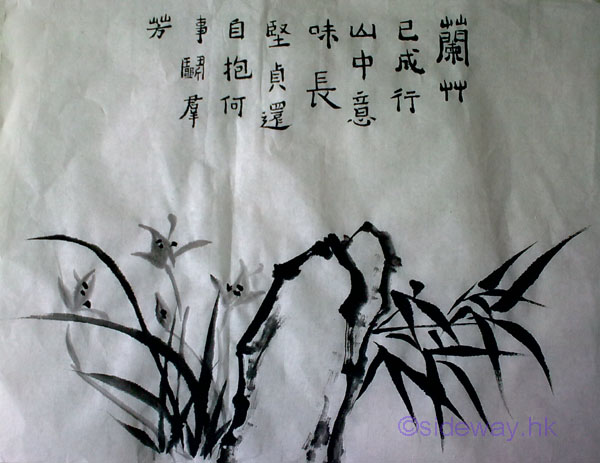 蘭艸
已成行
山中意
味長
堅貞還
自抱何
事鬭羣
芳
©sideway.hk